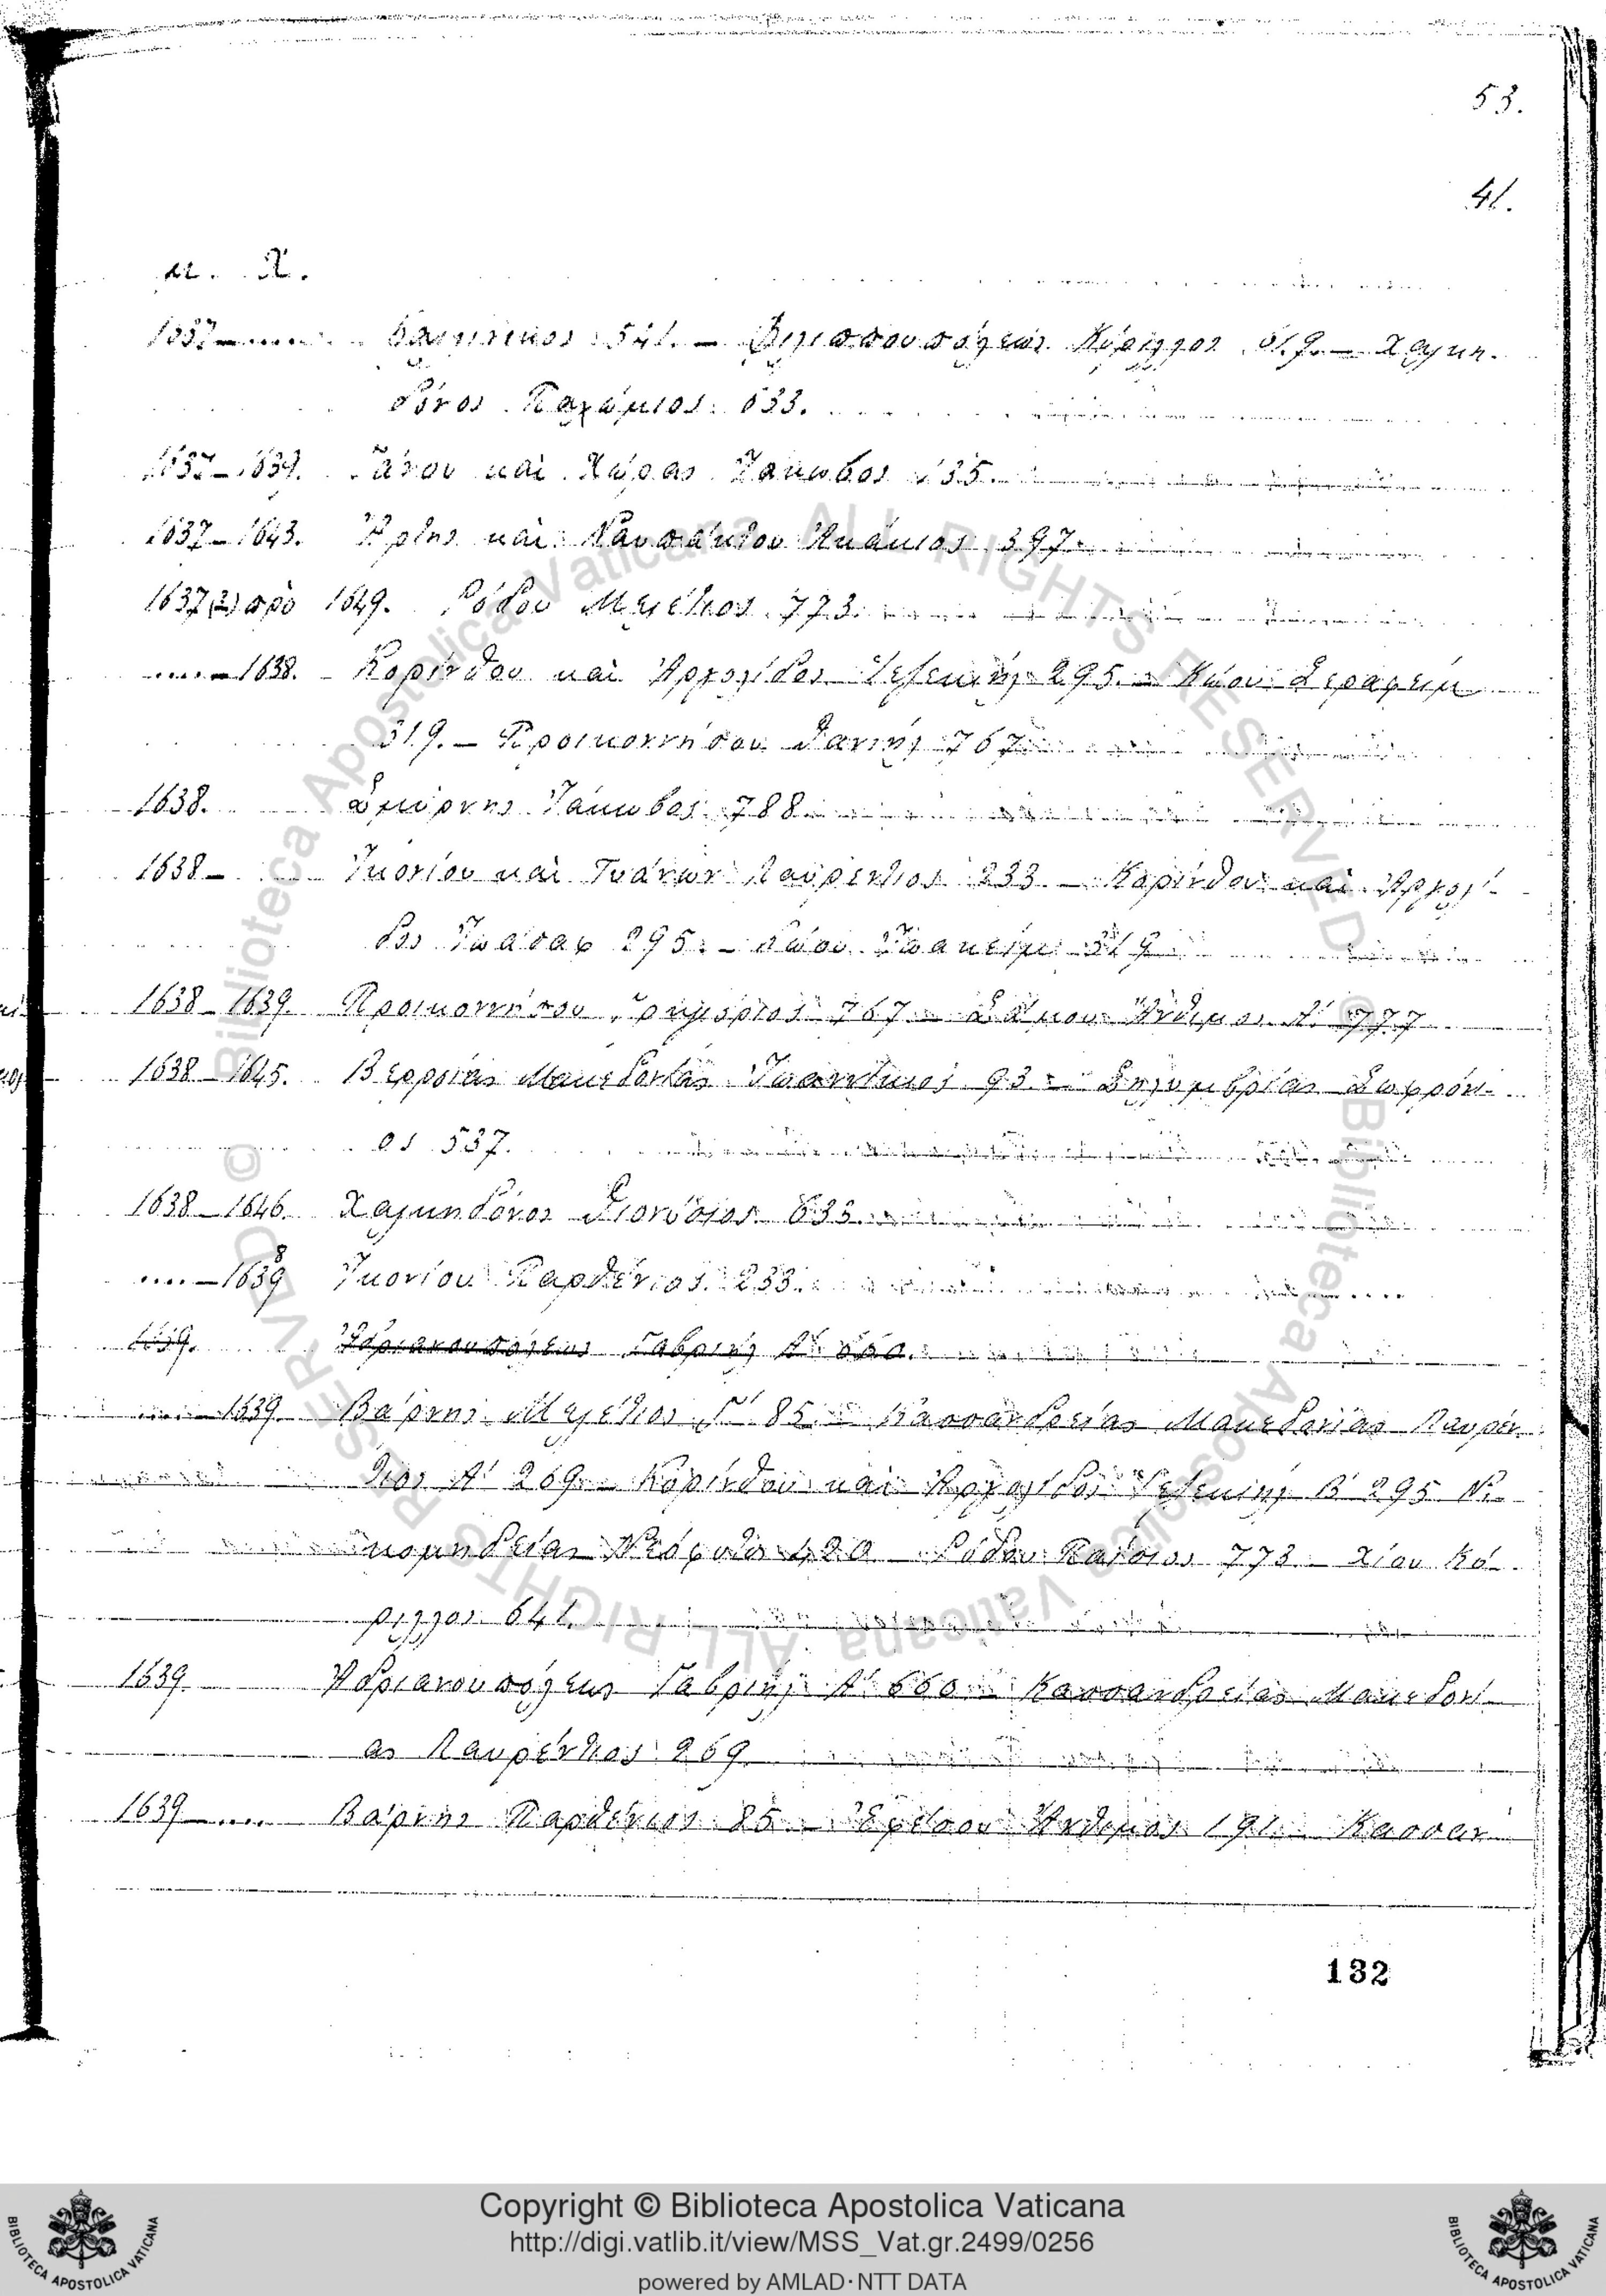 53.
41.
μ. Χ.
1637 — .... 541. — Φιλιππουπόλεως Κύριλλος — Χαλκη-
δόνος Παχώμιος 633.
1637 — 1639. Γάνου καὶ Χώρας Ἰάκωβος 135.
1637 — 1643. Κρήτης καὶ Ἀκάκιος 397.
1637(;) πρὸ 1649. Ῥόδου Μελέτιος 773.
.... — 1638. Κορίνθου καὶ Ἀργολίδος Ἰεζεκιὴλ 295. — Κώου Σεραφεὶμ
319. — Προικοννήσου Δανιὴλ 767
1638. Σμύρνης Ἰάκωβος 788
1638 — .... Ἰκονίου καὶ Τυάνων Λαυρέντιος 233. — Κορίνθου καὶ Ἀργολί-
δος Ἰωάσαφ 295. — Κώου Ἰωακεὶμ 319
1638 — 1639. Προικοννήσου Γρηγόριος 767 — Σάμου Ἄνθιμος Α′ 777
1638 — 1645. Βερροίας Μακεδονίας Ἰωαννίκιος 93 — Σηλυμβρίας Σωφρόνι-
ος 537.
1638 — 1646. Χαλκηδόνος Διονύσιος 635.
8
.... — 1639 Ἰκονίου Παρθένιος 233.
1639. Ἀδριανουπόλεως Γαβριὴλ Α′ 660.
.... — 1639. Βάρνης Μελέτιος Γ′ 85 — Κασσανδρείας Μακεδονίας Λαυρέν-
τιος Α′ 269 — Κορίνθου καὶ Ἀργολίδος Ἰεζεκιὴλ Β′ 295 Νι-
κομηδείας Νεόφυτος — Ῥόδου Παΐσιος 773 — Χίου Κύ-
ριλλος 641.
1639 Ἀδριανουπόλεως Γαβριὴλ Α′ 660 — Κασσανδρείας Μακεδονί-
ας Λαυρέντιος 269
1639 — .... Βάρνης Παρθένιος 85 — Ἐφέσου Ἄνθιμος 191 — Κασσαν
132
Copyright © Biblioteca Apostolica Vaticana
http://digi.vatlib.it/view/MSS_Vat.gr.2499/0256
powered by AMLAD·NTT DATA